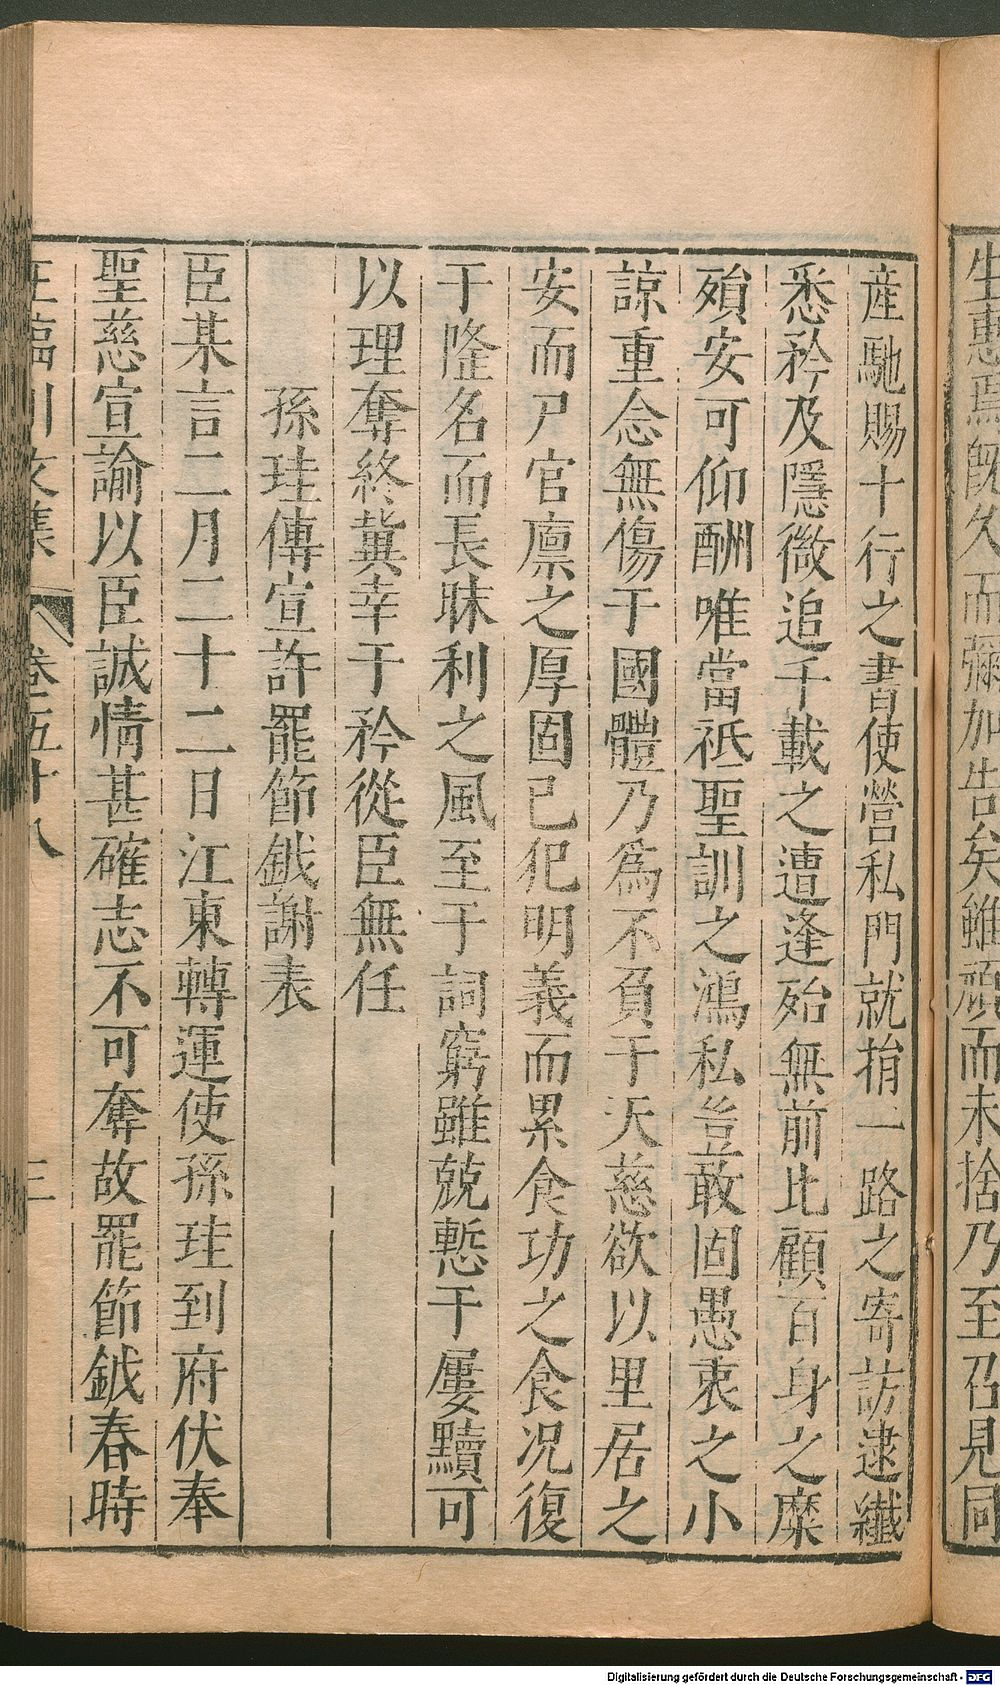 生惠焉既久而彌加告矣雖頑而未捨乃至召見同
産馳賜十行之書使營私門就捐一路之寄訪逮纎
悉矜及隱微追千載之遭逢殆無前比顧百身之糜
殞安可仰酬唯當祗聖訓之鴻私豈敢固愚衷之小
諒重念無傷于國體乃爲不負于天慈欲以里居之
安而尸官廪之厚固已犯明義而累食功之食况復
于隆名而長昧利之風至于詞窮雖兢慙于屢黷可
以理奪終冀幸于矜從臣無任
孫珪傳宣許罷節鉞謝表
臣某言二月二十二日江東轉運使孫珪到府伏奉
聖慈宣諭以臣誠情甚確志不可奪故罷節鉞春時
王臨川文集
卷五十八
三
Digitalisierung gefördert durch die Deutsche Forschungsgemeinschaft - DFG